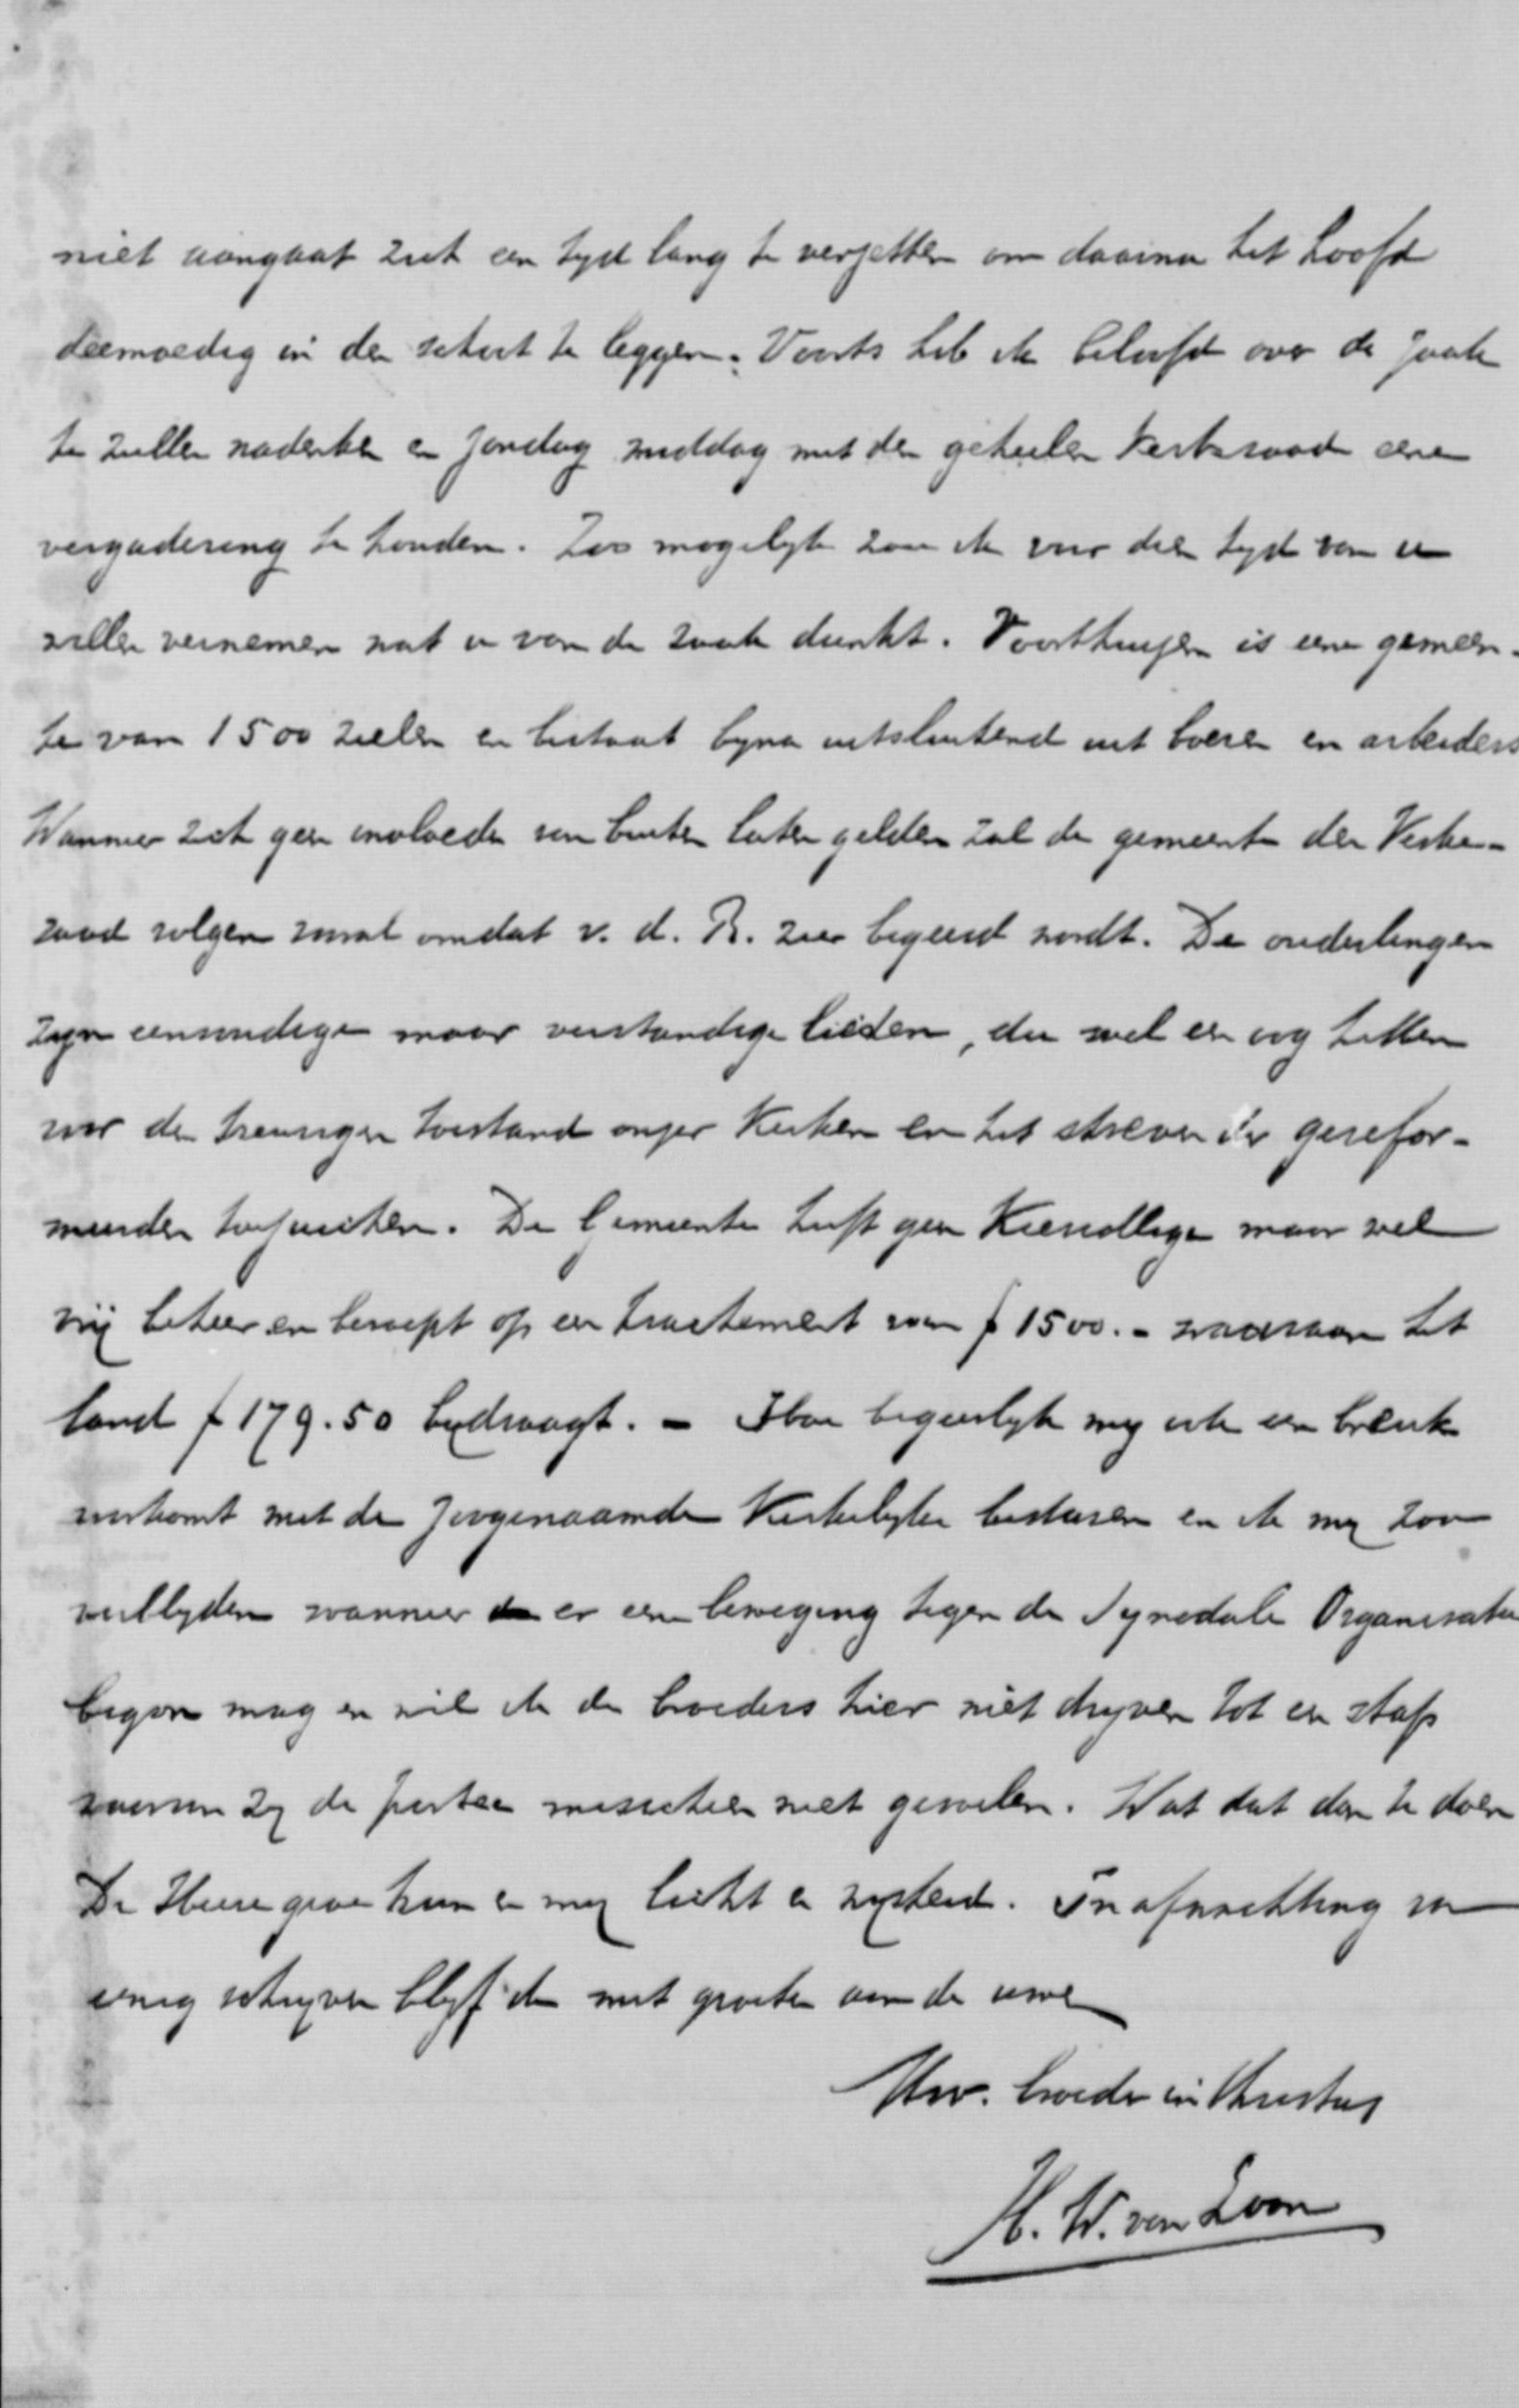 niet aangaat zich een tyd lang te verzetten om daarna het hoofd
deemoedig in den schoot te leggen. Voorts heb ik beloofd over de zaak
te zullen nadenken en zondag middag met den geheelen Kerkeraad eene
vergadering te houden. Zoo mogelyk zou ik voor dien tyd van u
willen vernemen wat u van de zaak dunkt. Voorthuizen is eene gemeen-
te van 1500 zielen en bestaat byna uitsluitend uit boeren en arbeiders
Wanneer zich geen invloeden van buiten laten gelden zal de gemeente den Kerke-
raad volgen vooral omdat v. d. B. zeer begeerd wordt. De ouderlingen
zyn eenvoudige maar verstandige lieden, die wel een oog hebben
voor den treurigen toestand onzer Kerken en het streven der gerefor-
meerden toejuichen. De Gemeente heeft geen Kiescollege maar wel
vrij beheer en beroept op een tractement van f 1500.- waarvan het
land f 179.50 bydraagt. - Hoe begeerlyk my ook een breuk
voorkomt met de zoogenaamde Kerkelyke besturen en ik my zou
verblyden wanneer er een beweging tegen de Synodale Organisatie
begon mag en wil ik de broeders hier niet dryven tot een stap
waarvan zy de juiste misschien niet gevoelen. Wat dat dan te doen
De Heere geve hun en my licht en wysheid. In afwachting van
uw schryven blyf ik met groeten aan de uwen
Uw. broeder in Christus
H. W. van Loon